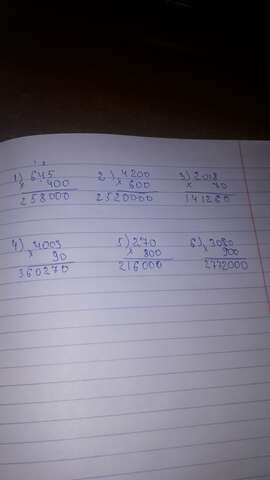 1 2
1) 645 2) 4200 3) 2018
× 400 × 600 × 70
258000 2520000 141260
4) 4003 5) 270 6) 3080
× 90 × 800 × 900
360270 216000 2772000